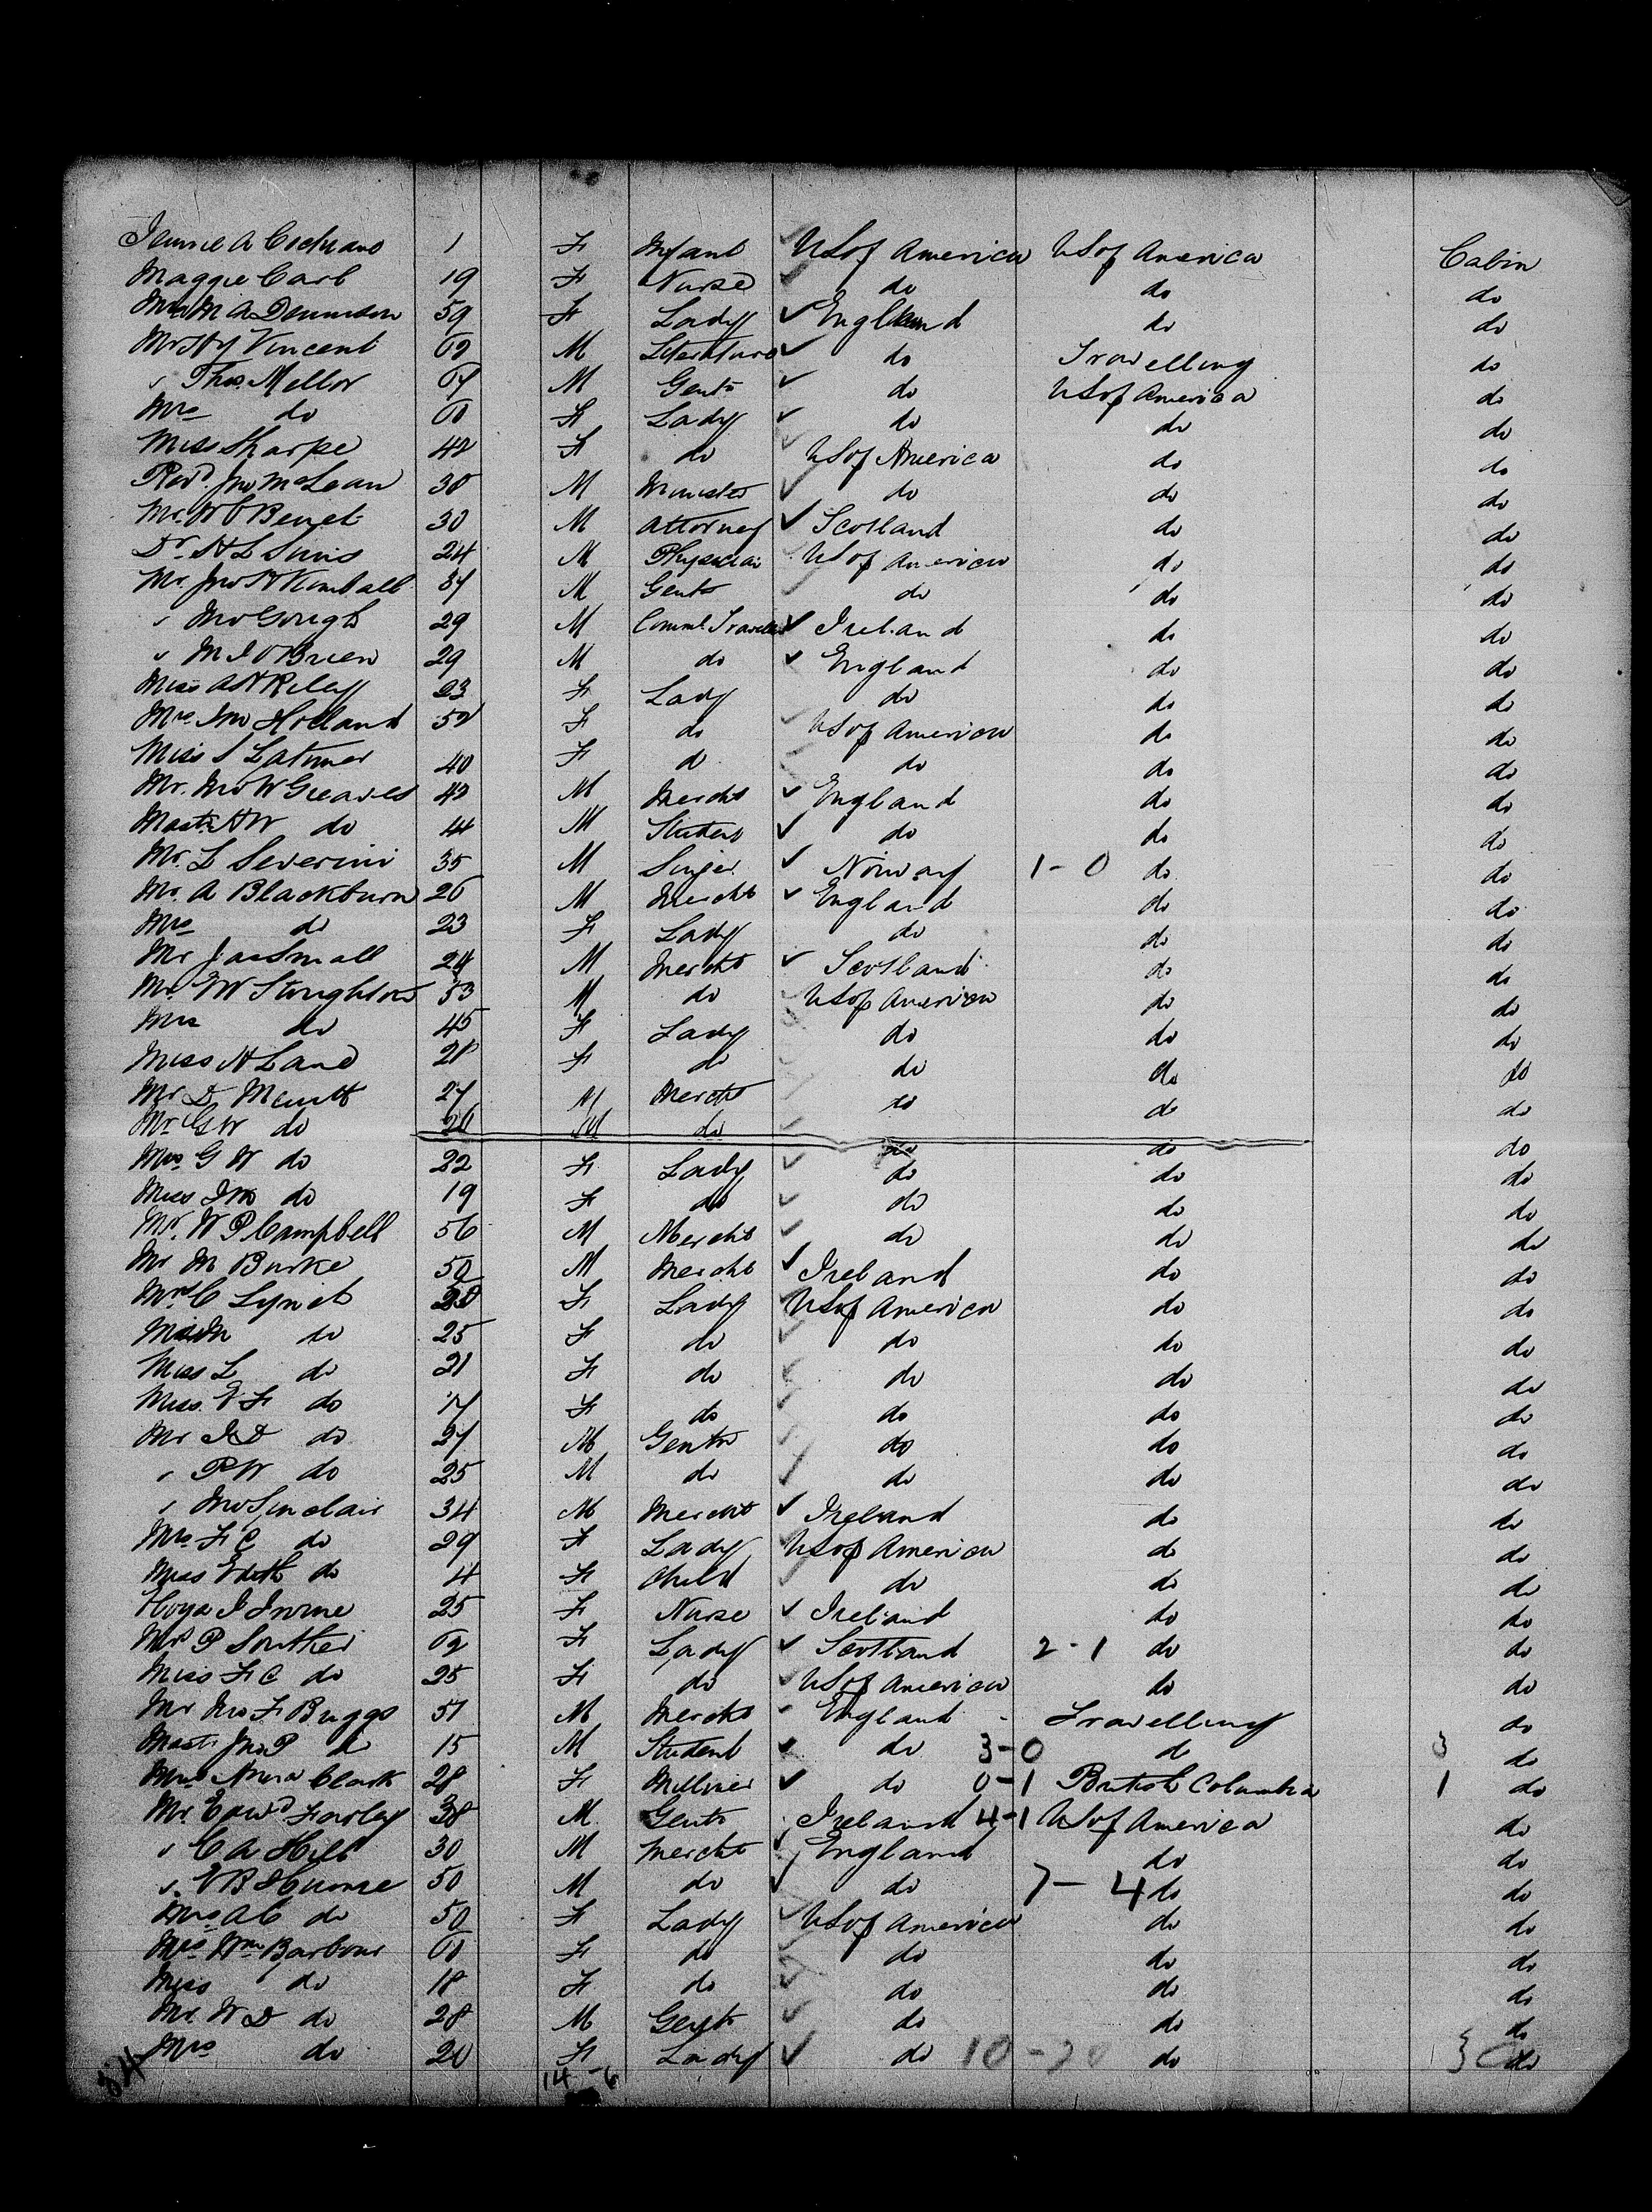 Jennie A Cochrane 1 F Infant US of America US of America Cabin
Maggie Carl 19 F Nurse do do do
Mrs M A Dennison 59 F Lady England do do
Mr Hy Vincent 62 M Literature do Travelling do
" Thos. Mellor 67 M Gent do US of America do
Mrs do 60 F Lady do do do
Miss Sharpe 42 F do US of America do do
Revd. Jno McLean 38 M Minister do do do
Mr. W C Benet 30 M Attorney Scotland do do
Dr. H L Sims 24 M Physician US of America do do
Mr. Jno H Kimball 37 M Gent do do do
" Jno Gough 29 M Comml. Traveller Ireland do do
" M J O'Brien 29 M do England do do
Miss A H Riley 23 F Lady do do do
Mrs Jno Holland 52 F do US of America do do
Miss S Latimer 40 F do do do do
Mr. Jno W Greaves 42 M Mercht England do do
Mastr. H W do 14 M Student do do do
Mr. L Severini 35 M Singer Norway 1-0 do do
Mr. A Blackburn 26 M Mercht England do do
Mrs do 23 F Lady do do do
Mr Jas Small 24 M Mercht Scotland do do
Mr. E W Stoughton 53 M do US of America do do
Mrs do 45 F Lady do do do
Miss H Lane 28 F do do do do
Mr D Merritt 27 M Mercht do do do
Mr G W do 26 M do do do do
Mrs G W do 22 F Lady do do do
Miss J M do 19 F do do do do
Mr. W P Campbell 56 M Mercht do do do
Mr M Burke 50 M Mercht Ireland do do
Mrs C Lynch F Lady US of America do do
Miss M do 25 F do do do do
Miss L do 21 F do do do do
Miss E F do 17 F do do do do
Mr J D do 27 M Gent do do do
" P W do 25 M do do do do
" Jno Sinclair 34 M Mercht Ireland do do
Mrs F C do 29 F Lady US of America do do
Miss Edith do 4 F Child do do do
J Irvine 25 F Nurse Ireland do do
Mrs P Souther 62 F Lady Scotland 2-1 do do
Miss F C do 25 F do US of America do do
Mr Jno F Briggs 51 M Mercht England Travelling do
Mastr Jno P do 15 M Student do 3-0 do 3 do
Mrs Clark 28 F Milliner do 0-1 British Columbia 1 do
Mr. Edwd Farley 38 M Gent Ireland 4-1 US of America do
" C A Hill 30 M Mercht England do do
" E B Hume 50 M do do 7-4 do do
Mrs A C do 50 F Lady US of America do do
Mrs Wm Barbour 60 F do do do do
Miss do 18 F do do do do
Mr. W D do 28 M Gent do do do
Mrs do 20 F Lady do 10- do do
14-6